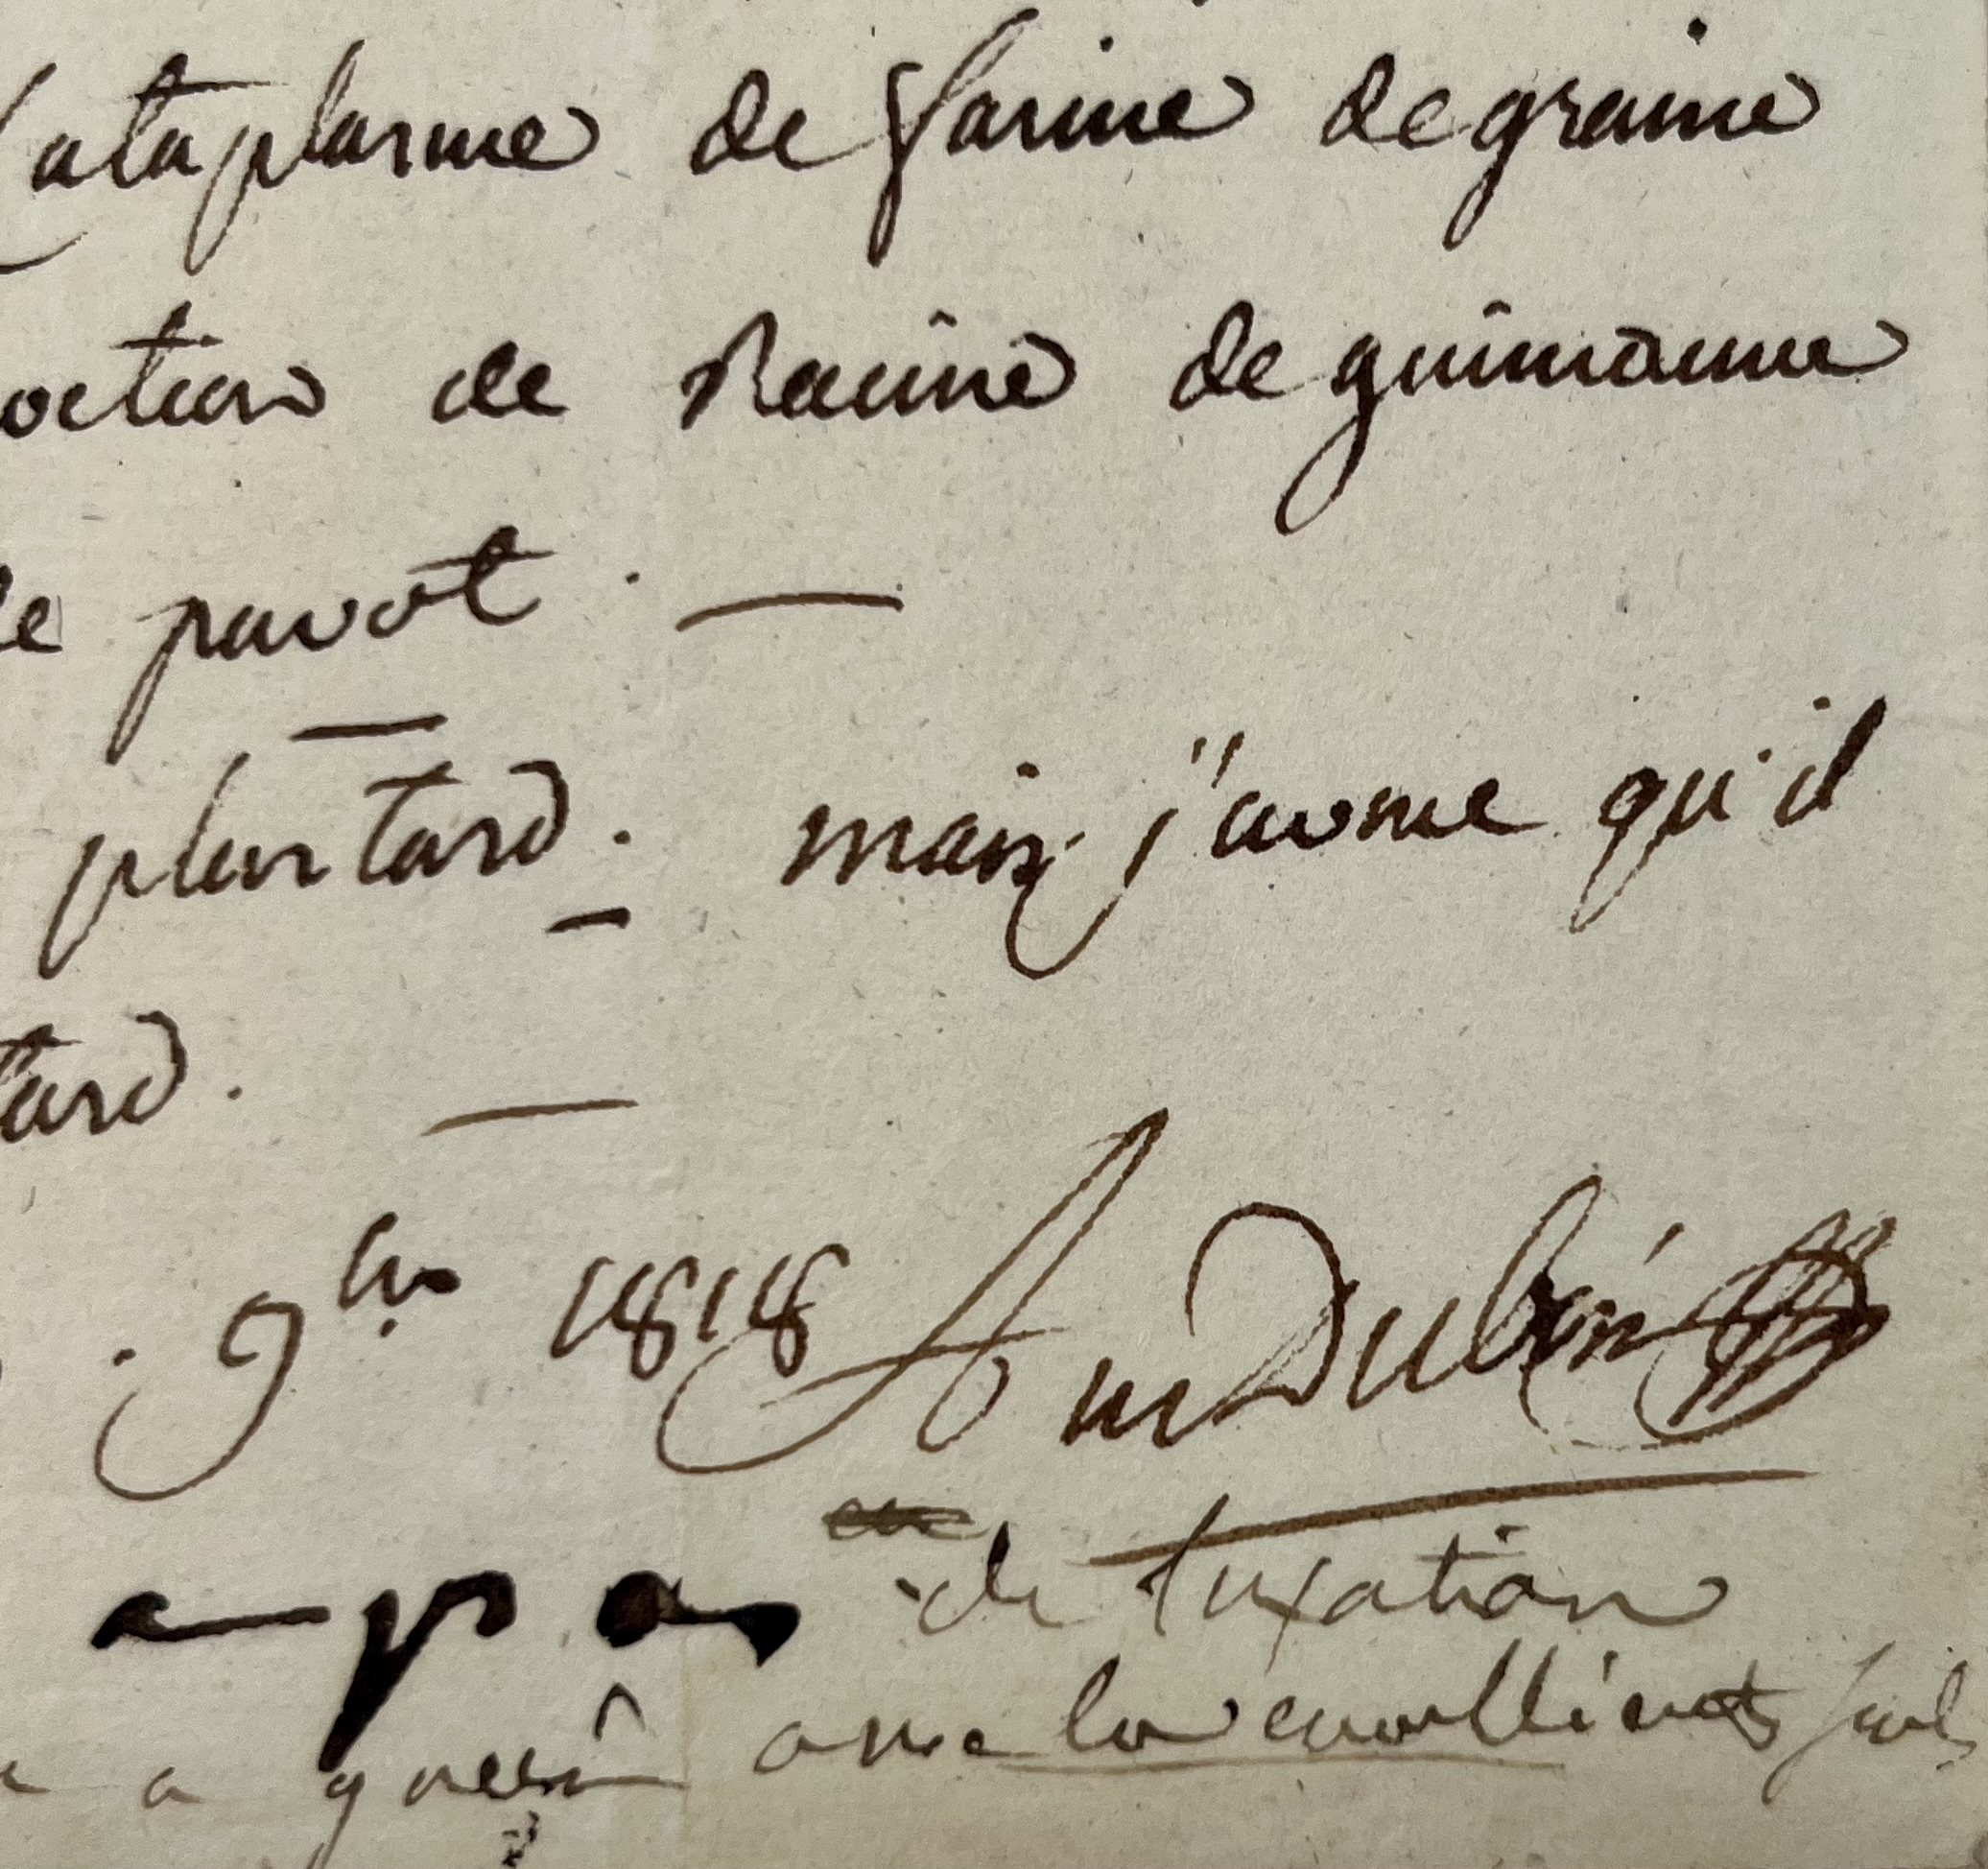 Cataplasme de farine de graine
octions de Racine de guimauve
de pavot . —
plus tard. — mais j'avoue qu'il
tard. —
. 9bre 1818 AmDubois
a pas de luxation
a guéri avec les emollients seuls